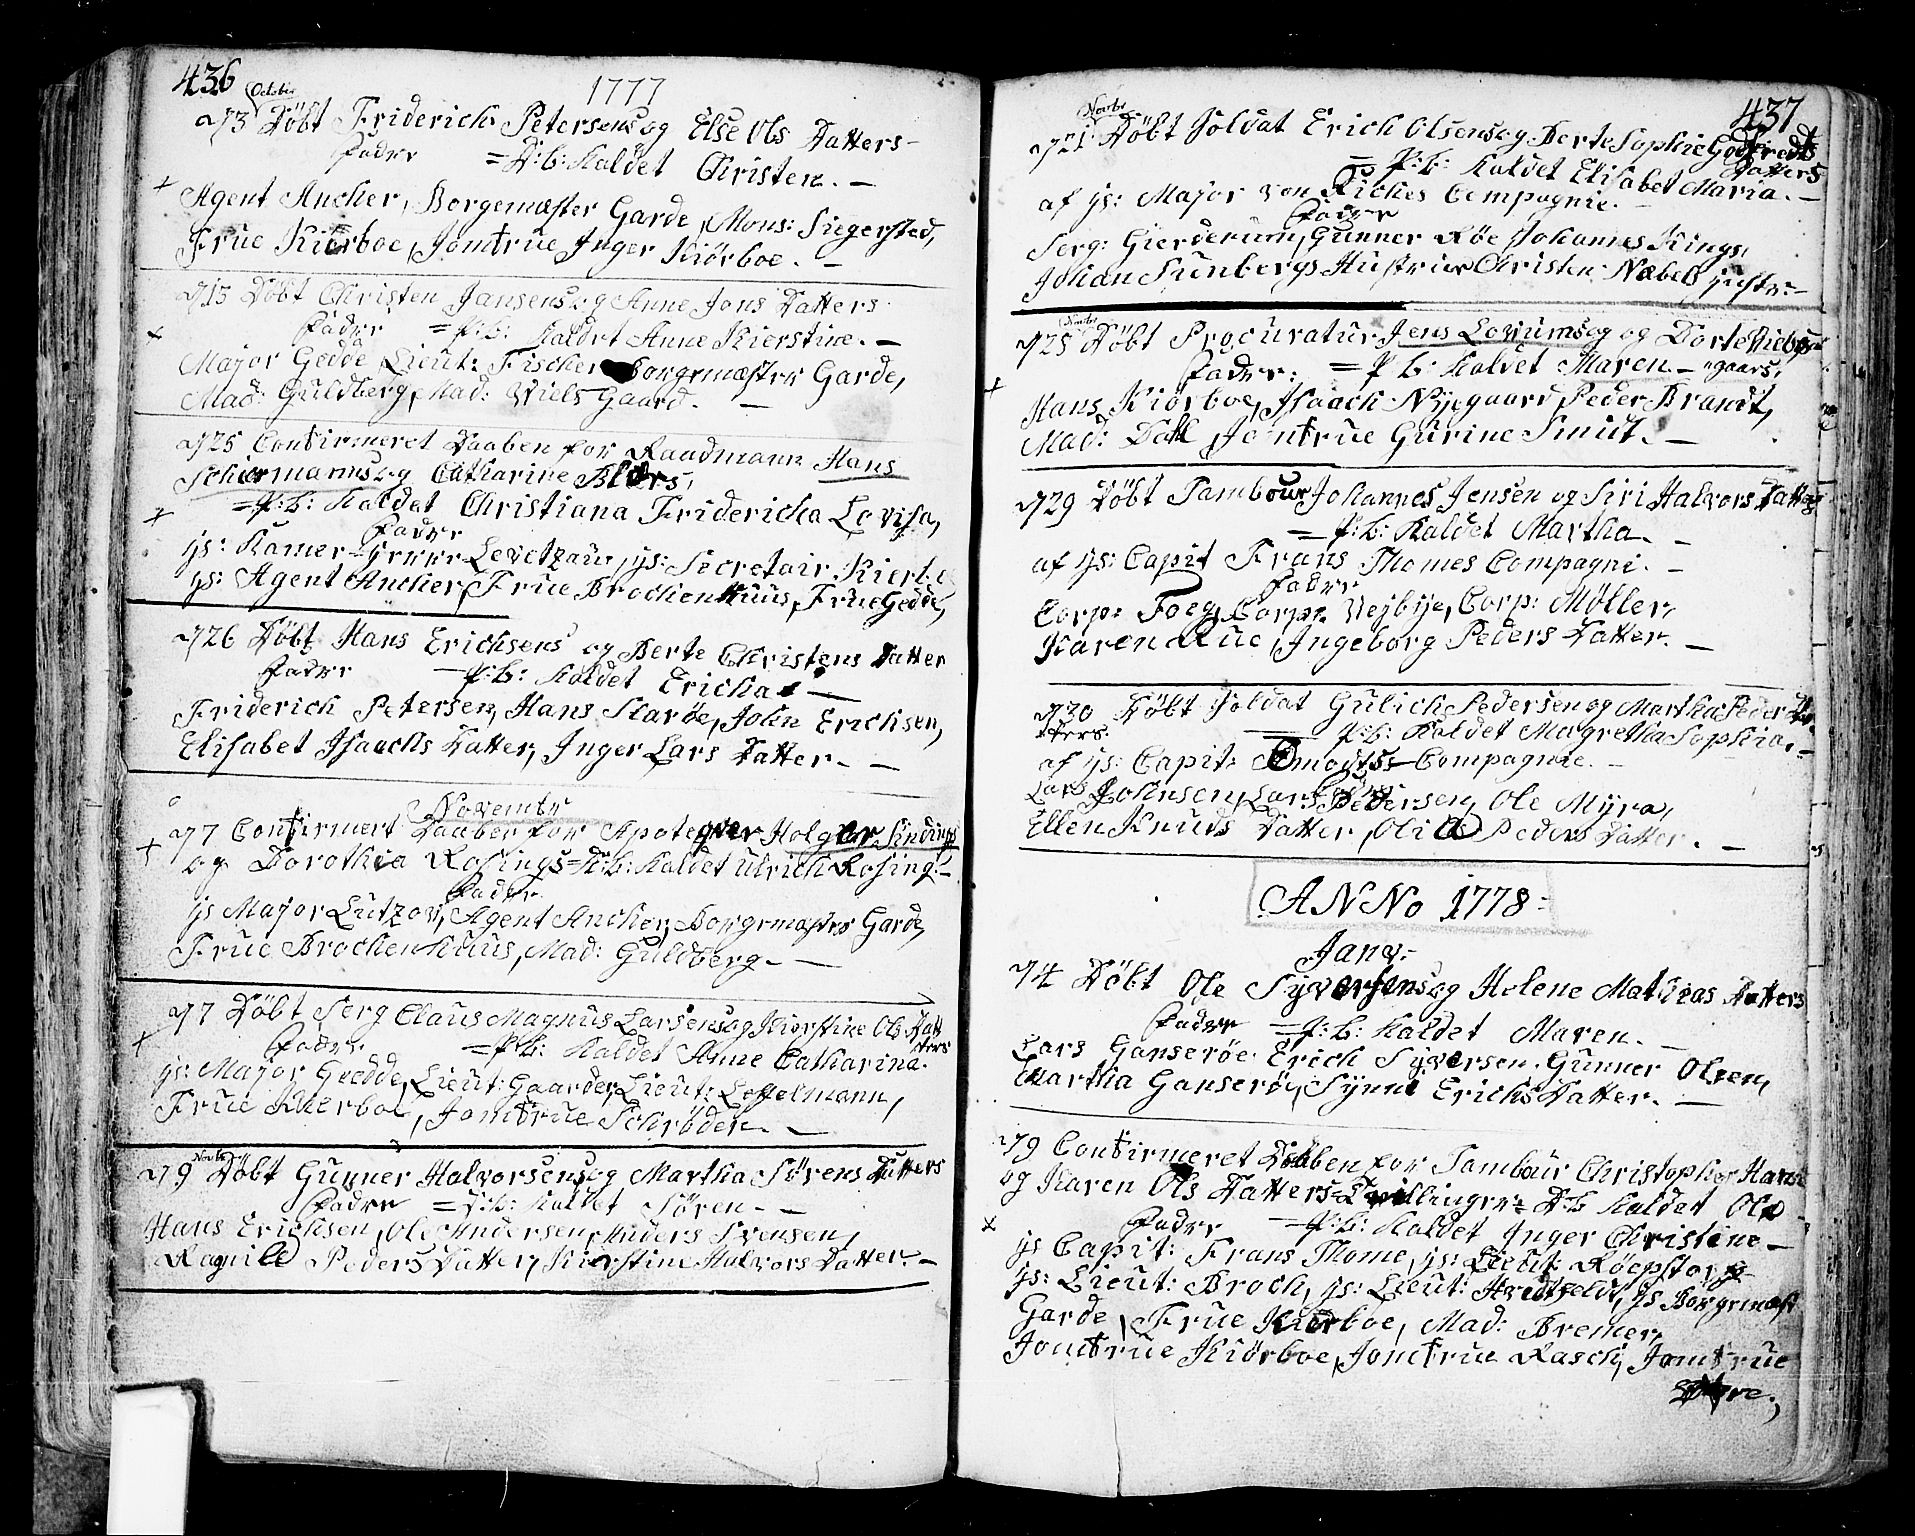 436
1777
October
d 3 Döbt Friderich Petersens og Else Ols Datters -
Fadder = D: b: Kaldet Christen. -
+
Agent Ancher, Borgemæster Garde, Mons: Siegersted,
Frue Kierboe, Jomfrue Inger Kiörboe. -
d 15 Döbt Christen Jansens og Anne Jons Datters
Fadder = P: b: Kaldet Anne Kierstine. -
+
Major Gedde, Lieut: Fischer Borgemæster Garde,
Mad: Guldberg, Mad: Niels Gaard. -
d 25 Confirmeret Daaben for Raadmann Hans
Schiermanns og Catharine
= P: b: Kaldet Christiana Fridericha Lovisa,
+
Fadder
Hs: Kamer-Herre Levetzau, Hs: Secretair Kierboe
Hs: Agent Ancher, Frue Brochenhuus, Frue Gedde,
d 26 Döbt Hans Erichsens og Berte Christens Datter
Fadder = P: b: Kaldet Ericha -
Friderich Petersen, Hans Skaröe, John Erichsen,
Elisabet Isaachs Datter, Inger Lars Datter. -
Novembr
d 7 Confirmert Daaben for Apoteqver Holger Sindings
+
og Dorothea Rosings = D: b: Kaldet Ulrich Rosing. -
Fadder
Hs Major Lutzov, Agent Ancher, Borgemæster Garde,
Frue Brochenhuus, Mad: Guldberg. -
d 7 Döbt Serg Claus Magnus Larsens og Kierstine Ols Dat
ters
+
Fadder = P: b: Kaldet Anne Catharina.
Hs: Major Gedde, Lieut: Gaarder, Lieut: Loffelmann,
Frue Kierboe, Jomfrue Schröder. -
Novbr
d 9 Döbt Gunner Halvorsens og Martha Sörens Datters
Fadder = D: b: Kaldet Sören. -
Hans Erichsen, Ole Andersen, Anders Svensen,
Ragnild Peders Datter, Kierstine Halvors Datter. -
437
Novbr
d 21 Döbt Soldat Erich Olsens og Berte Sophie Godfreds
Datters
= P: b: Kaldet Elisabet Maria. -
af Hs: Major von Riches Compagnie.
Fadder
Serg: Gierderum, Gunner Röe, Johannes Kings,
Johan Sunbergs Hustrue Christen Næbels Hustr: -
Novbr
d 25 Döbt Procuratur Jens Lovums og og Dorte Niebye
gaars,
Fadder: = P b: Kaldet Maren. -
+
Hans Kiörboe, Isaach Nyegaard, Peder Brandt,
Mad: Dahl, Jomfrue Gurine Smidt. -
d 29 Döbt Tambour Johannes Jensen og Siri Halvors Datters
= P: b: Kaldet Martha. -
af Hs: Capit Frans Thomes Compagni. -
Fadder
Corp: Foeg, Corp: Vejbye, Corp: Möller,
Karen Rue, Ingeborg Peders Datter. -
d 30 Döbt Soldat Gulich Pedersen og Martha Peders Da
tters
= P: b: Kaldet Magretha Sophia. -
af Hs: Capit: Compagnie. -
Lars Johnsen, Lars Pedersen, Ole Myra,
Ellen Knuds Datter, Olia Peders Datter. -
ANNo 1778
Janv:
d 4 Döbt Ole Syversens og Helene Mathias Datters
Fadder = P: b: Kaldet Maren. -
Lars Ganseröe Erich Syversen, Gunner Olsen,
Martha Ganseröe, Synne Erichs Datter. -
d 9 Confirmeret Daaben for Tambour Christopher Hans
og Karen Ols Datters Tvillinger = D: b Kaldet Ole
+
Fadder = P: b: Kaldet Inger Christine -
Hs Capit: Frans Thome, Hs: Lieut: Röepstorf
Hs: Lieut: Broch, Hs: Lieut: Hvidtfeldt, Hs Borgemæst
Garde, Frue Kierboe, Mad: Bremer,
Jomfrue Kiörboe, Jomfrue Rasch, Jomfrue